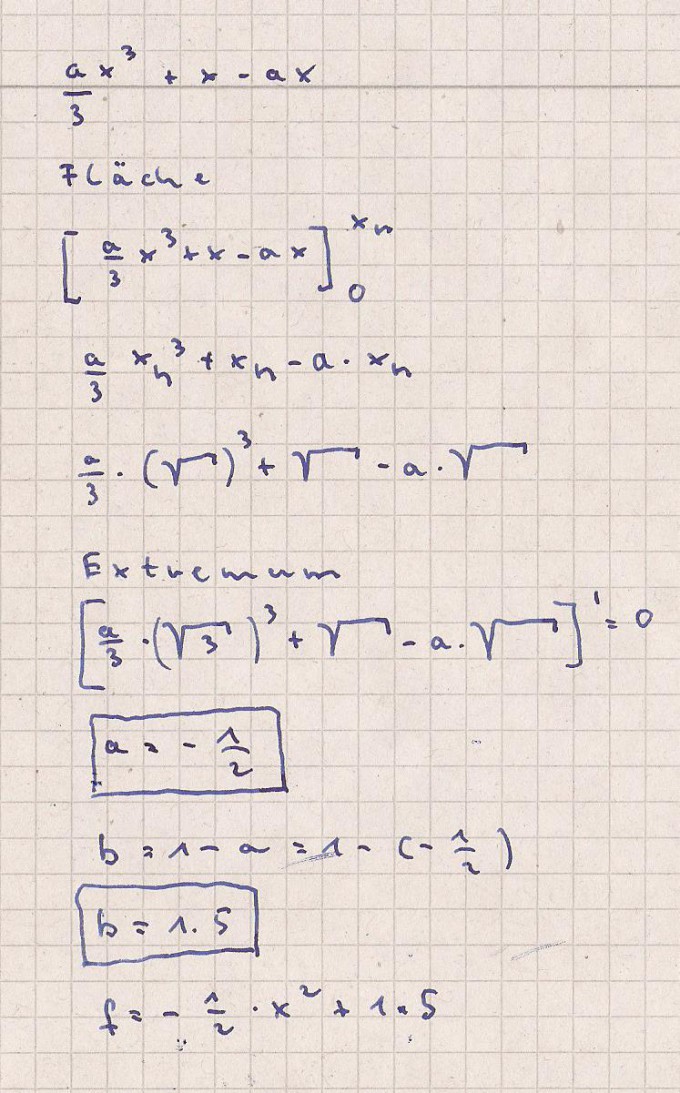 a/3 x³ + x - ax
Fläche
[a/3 x³ + x - ax]₀^xₙ
a/3 xₙ³ + xₙ - a · xₙ
a/3 · (√ )³ + √ - a · √
Extremum
[a/3 · (√3)³ + √ - a · √ ]' = 0
a = - 1/2
b = 1 - a = 1 - (- 1/2)
b = 1.5
f = - 1/2 · x² + 1.5